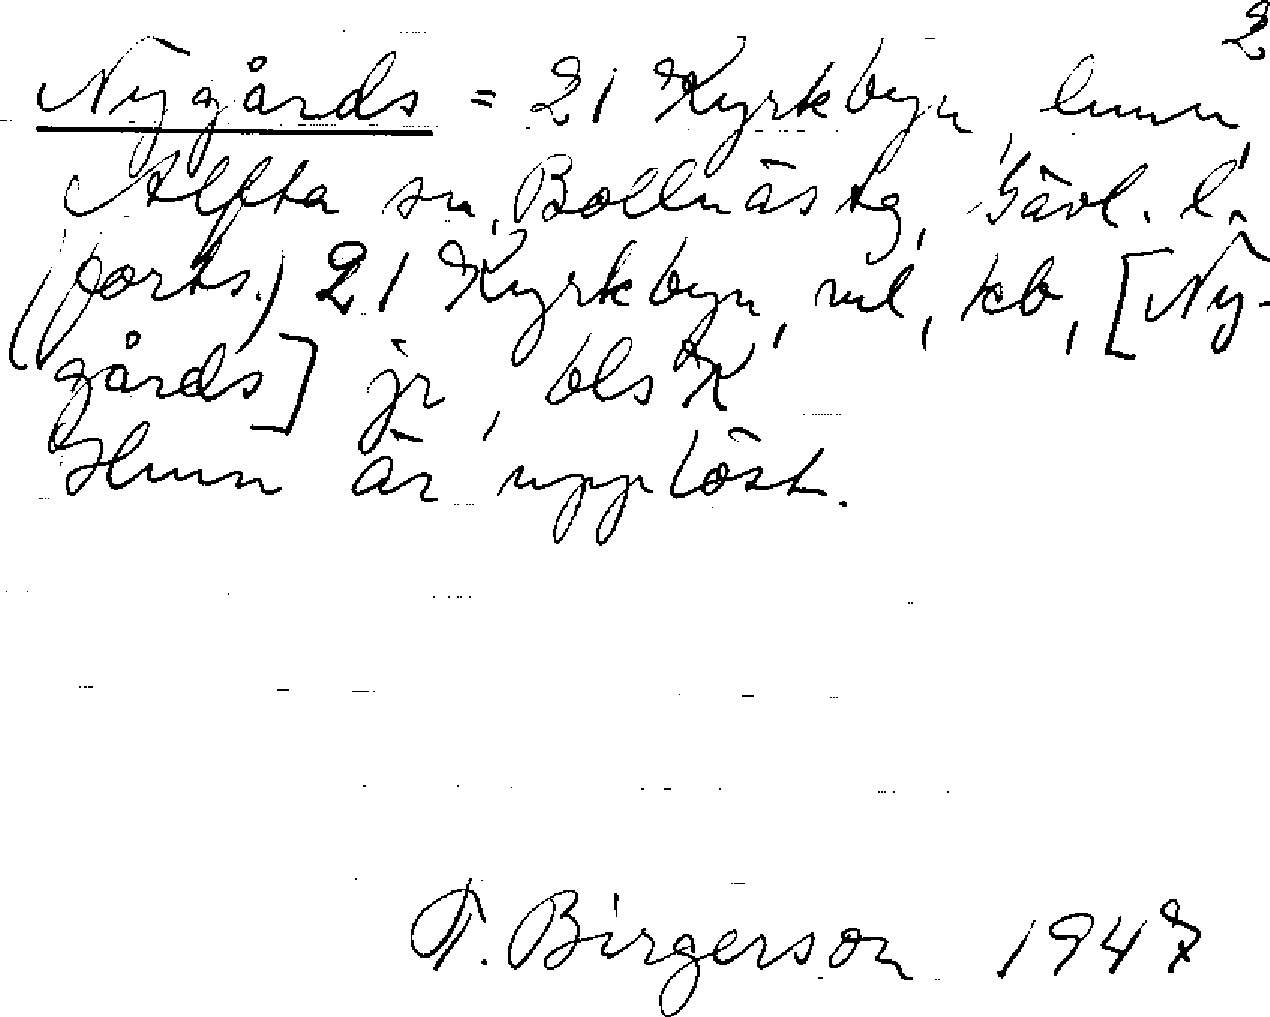 2
Nygårds = 21 Kyrkbyn, hmn,
Alfta sn, Bollnäs tg, Gävl. l.
(forts.) 21 Kyrkbyn, vl, kb, [Ny-
gårds] jr, bls K
Hmn är upplöst.
T. Birgerson 1947